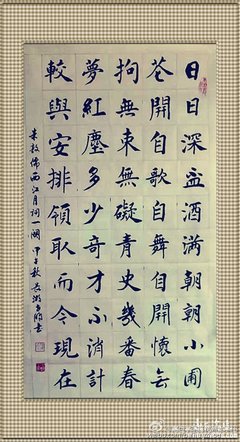 日日深盃酒满朝朝小圃
花開自歌自舞自開懷無
拘無束無礙青史幾番春
夢紅塵多少奇才不消計
較與安排領取而今現在
朱敦儒西江月詞一闋 甲午秋